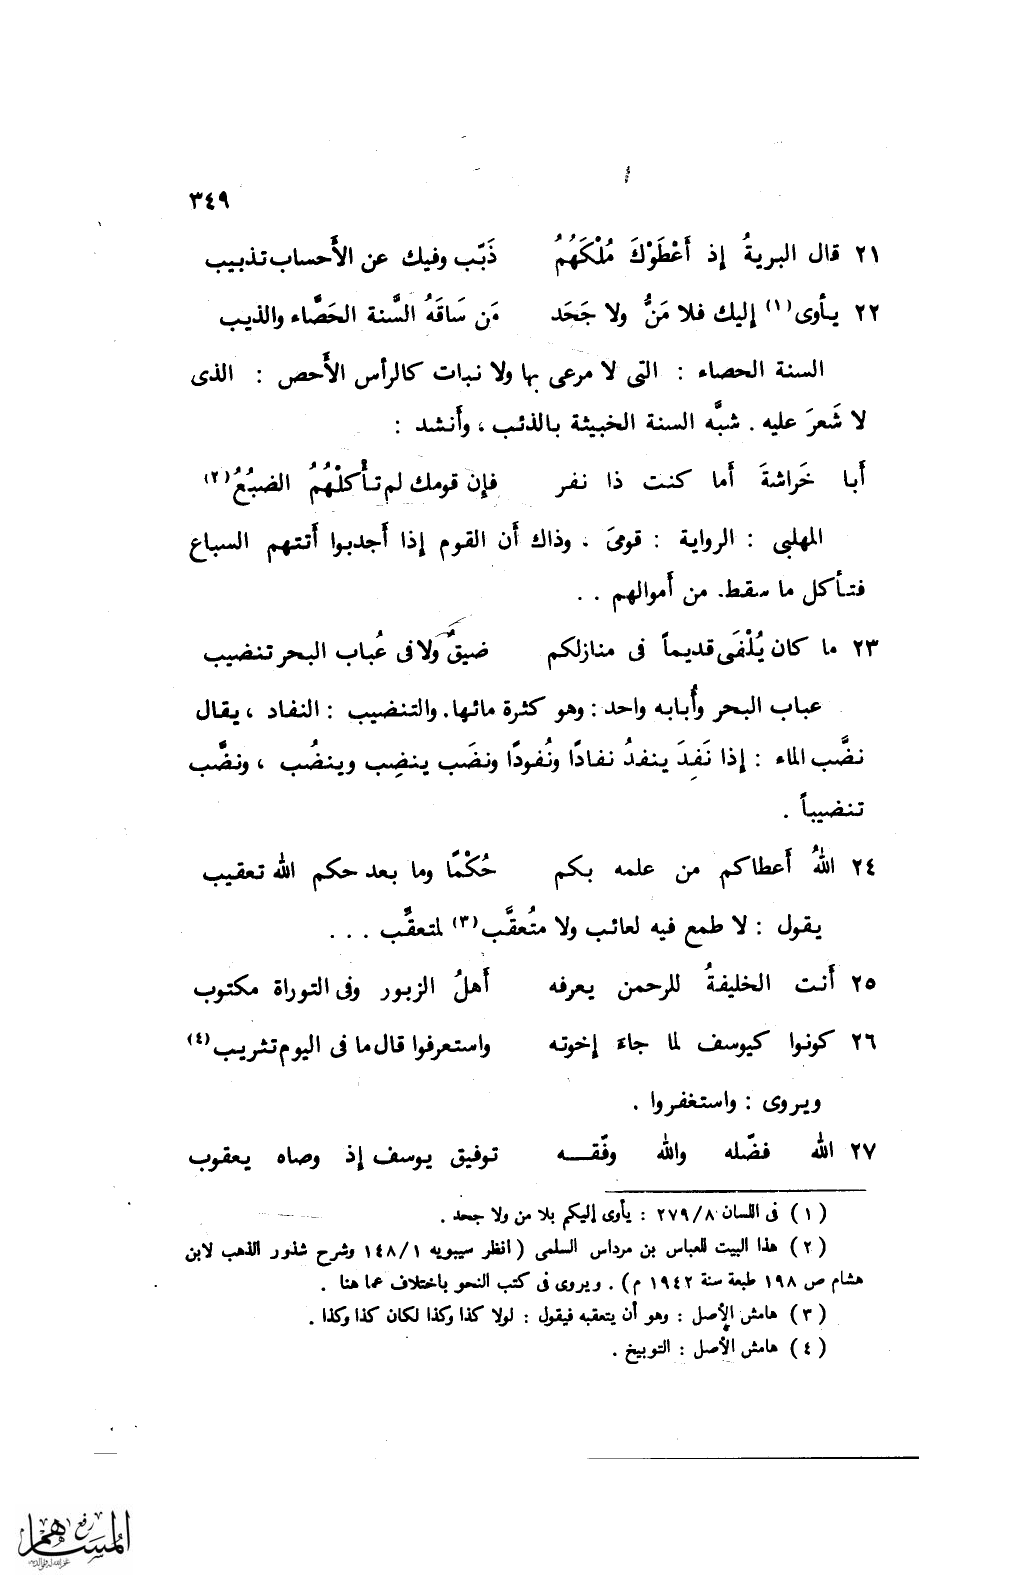 ٣٤٩
٢١ قال البريةُ إذ أَعْطَوْكَ مُلْكَهُمُ ذَبّب وفيك عن الأَحساب تذبيب
٢٢ يأوى(١) إليك فلا مَنٌّ ولا جَحَد مَن سَاقَهُ السَّنة الحَصَّاء والذيب
السنة الحصاء : التى لا مرعى بها ولا نبات كالرأس الأَحص : الذى
لا شَعرَ عليه . شبَّه السنة الخبيثة بالذئب ، وأَنشد :
أَبا خَراشةَ أَما كنت ذا نفر فإن قومك لم تأْكلْهُمُ الضبُعُ(٢)
المهلبى : الرواية : قومىَ . وذاك أَن القوم إذا أَجدبوا أَتتهم السباع
فتأكل ما سقط من أَموالهم . .
٢٣ ما كان يُلْفَى قديماً فى منازلكم ضيقٌ ولا فى عُباب البحر تنضيب
عباب البحر وأُبابه واحد : وهو كثرة مائها . والتنضيب : النفاد ، يقال
نضَّب الماء : إذا نَفِدَ ينفدُ نفادًا ونُفودًا ونضَب ينضِب وينضُب ، ونضَّب
تنضيباً .
٢٤ اللهُ أَعطاكم من علمه بكم حُكْمًا وما بعد حكم الله تعقيب
يقول : لا طمع فيه لعائب ولا متُعقَّب(٣) لمتعقِّب . . .
٢٥ أَنت الخليفةُ للرحمن يعرفه أَهلُ الزبور وفى التوراة مكتوب
٢٦ كونوا كيوسف لما جاءَ إخوته واستعرفوا قال ما فى اليوم تثريب(٤)
ويروى : واستغفروا .
٢٧ الله فضّله والله وفّقــه توفيق يوسف إذ وصاه يعقوب
(١) فى اللسان ٢٧٩/٨ : يأوى إليكم بلا من ولا جحد .
(٢) هذا البيت للعباس بن مرداس السلمى ( انظر سيبويه ١٤٨/١ وشرح شذور الذهب لابن
هشام ص ١٩٨ طبعة سنة ١٩٤٢ م ) . ويروى فى كتب النحو باختلاف عما هنا .
(٣) هامش الأصل : وهو أن يتعقبه فيقول : لولا كذا وكذا لكان كذا وكذا .
(٤) هامش الأصل : التوبيخ .
رفع
المساهم